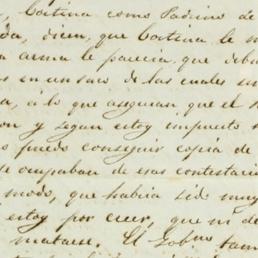 , Cortina como Padrino de
da, dicen, que Cortina le m
arma le parecia que debi
s en un saco de las cuales un
a, á lo que aseguran que el
on y segun estoy impuesto
s puedo conseguir copia de
se ocupaban de esas contestacio
modo, que habia sido muy
estoy por creer, que ni de
matarse. El Gobno tam